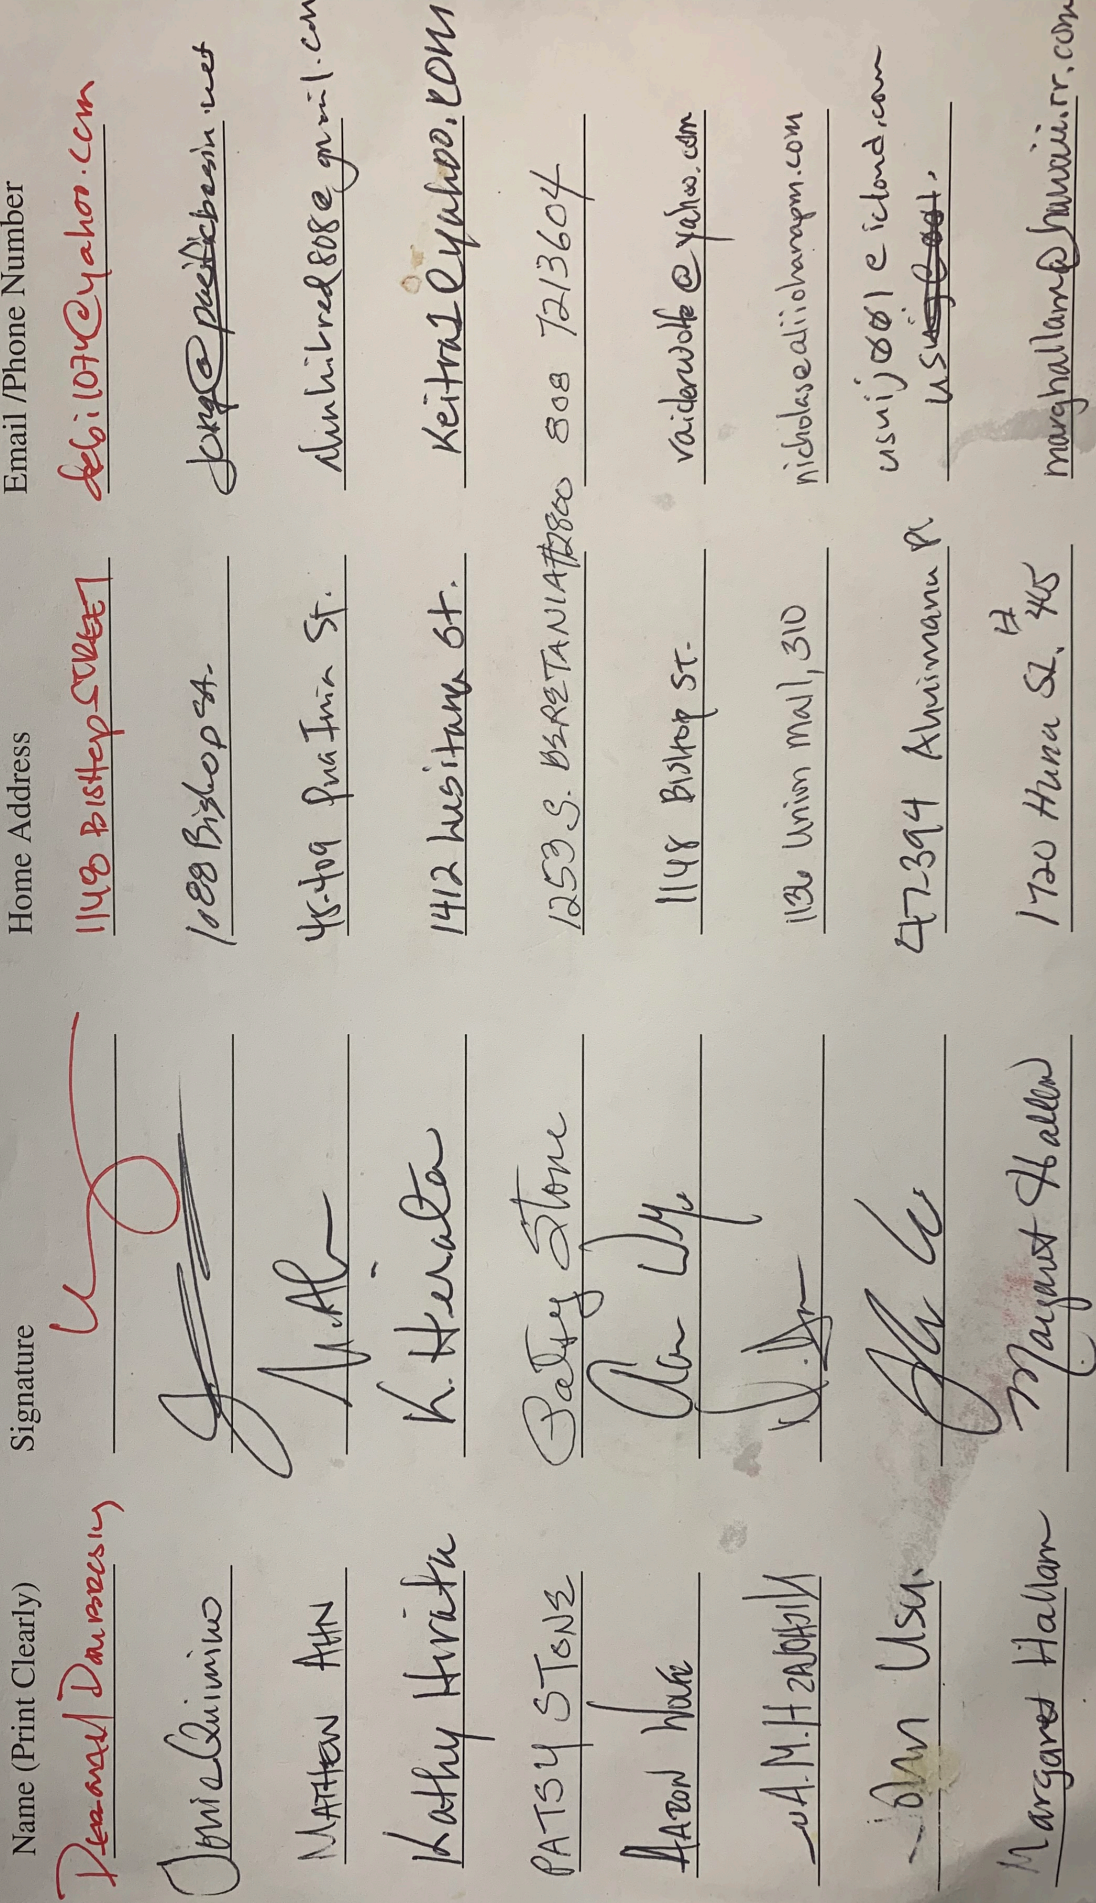 Name (Print Clearly) Signature Home Address Email /Phone Number
1148 BISHOP STREET debi1074@yahoo.com
1088 Bishop St. jong@pacificbasin.net
MATTHEW AHN 45-409 St. @gmail.com
Kathy Hirata K. Hirata 1412 Lusitana St. Keitra1@yahoo.com
PATSY STONE Patsy Stone 1253 S. BERETANIA #2800 808 7213604
AARON WOLFE 1148 BISHOP ST. vaiderwolfe@yahoo.com
1136 Union Mall, 310 nicholas@aliiohanapm.com
John Usui 47-394 Ahuimanu Pl usuij001@icloud.com
Margaret Hallam Margaret Hallam 1720 Huna St. # 405 marghallam@hawaii.rr.com